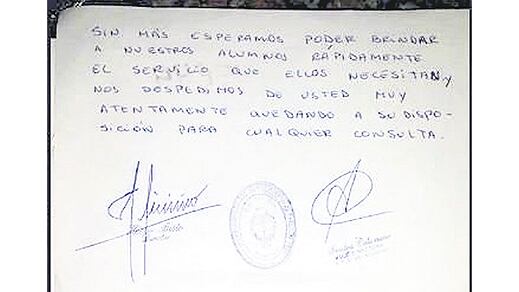 SIN MÁS ESPERAMOS PODER BRINDAR
A NUESTROS ALUMNOS RÁPIDAMENTE
EL SERVICIO QUE ELLOS NECESITAN y
NOS DESPEDIMOS DE USTED MUY
ATENTAMENTE QUEDANDO A SU DISPO-
SICIÓN PARA CUALQUIER CONSULTA.